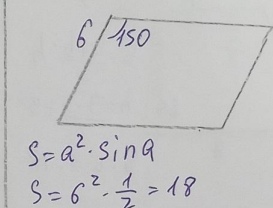 6 150
S=a²·sina
S=6²·1/2=18